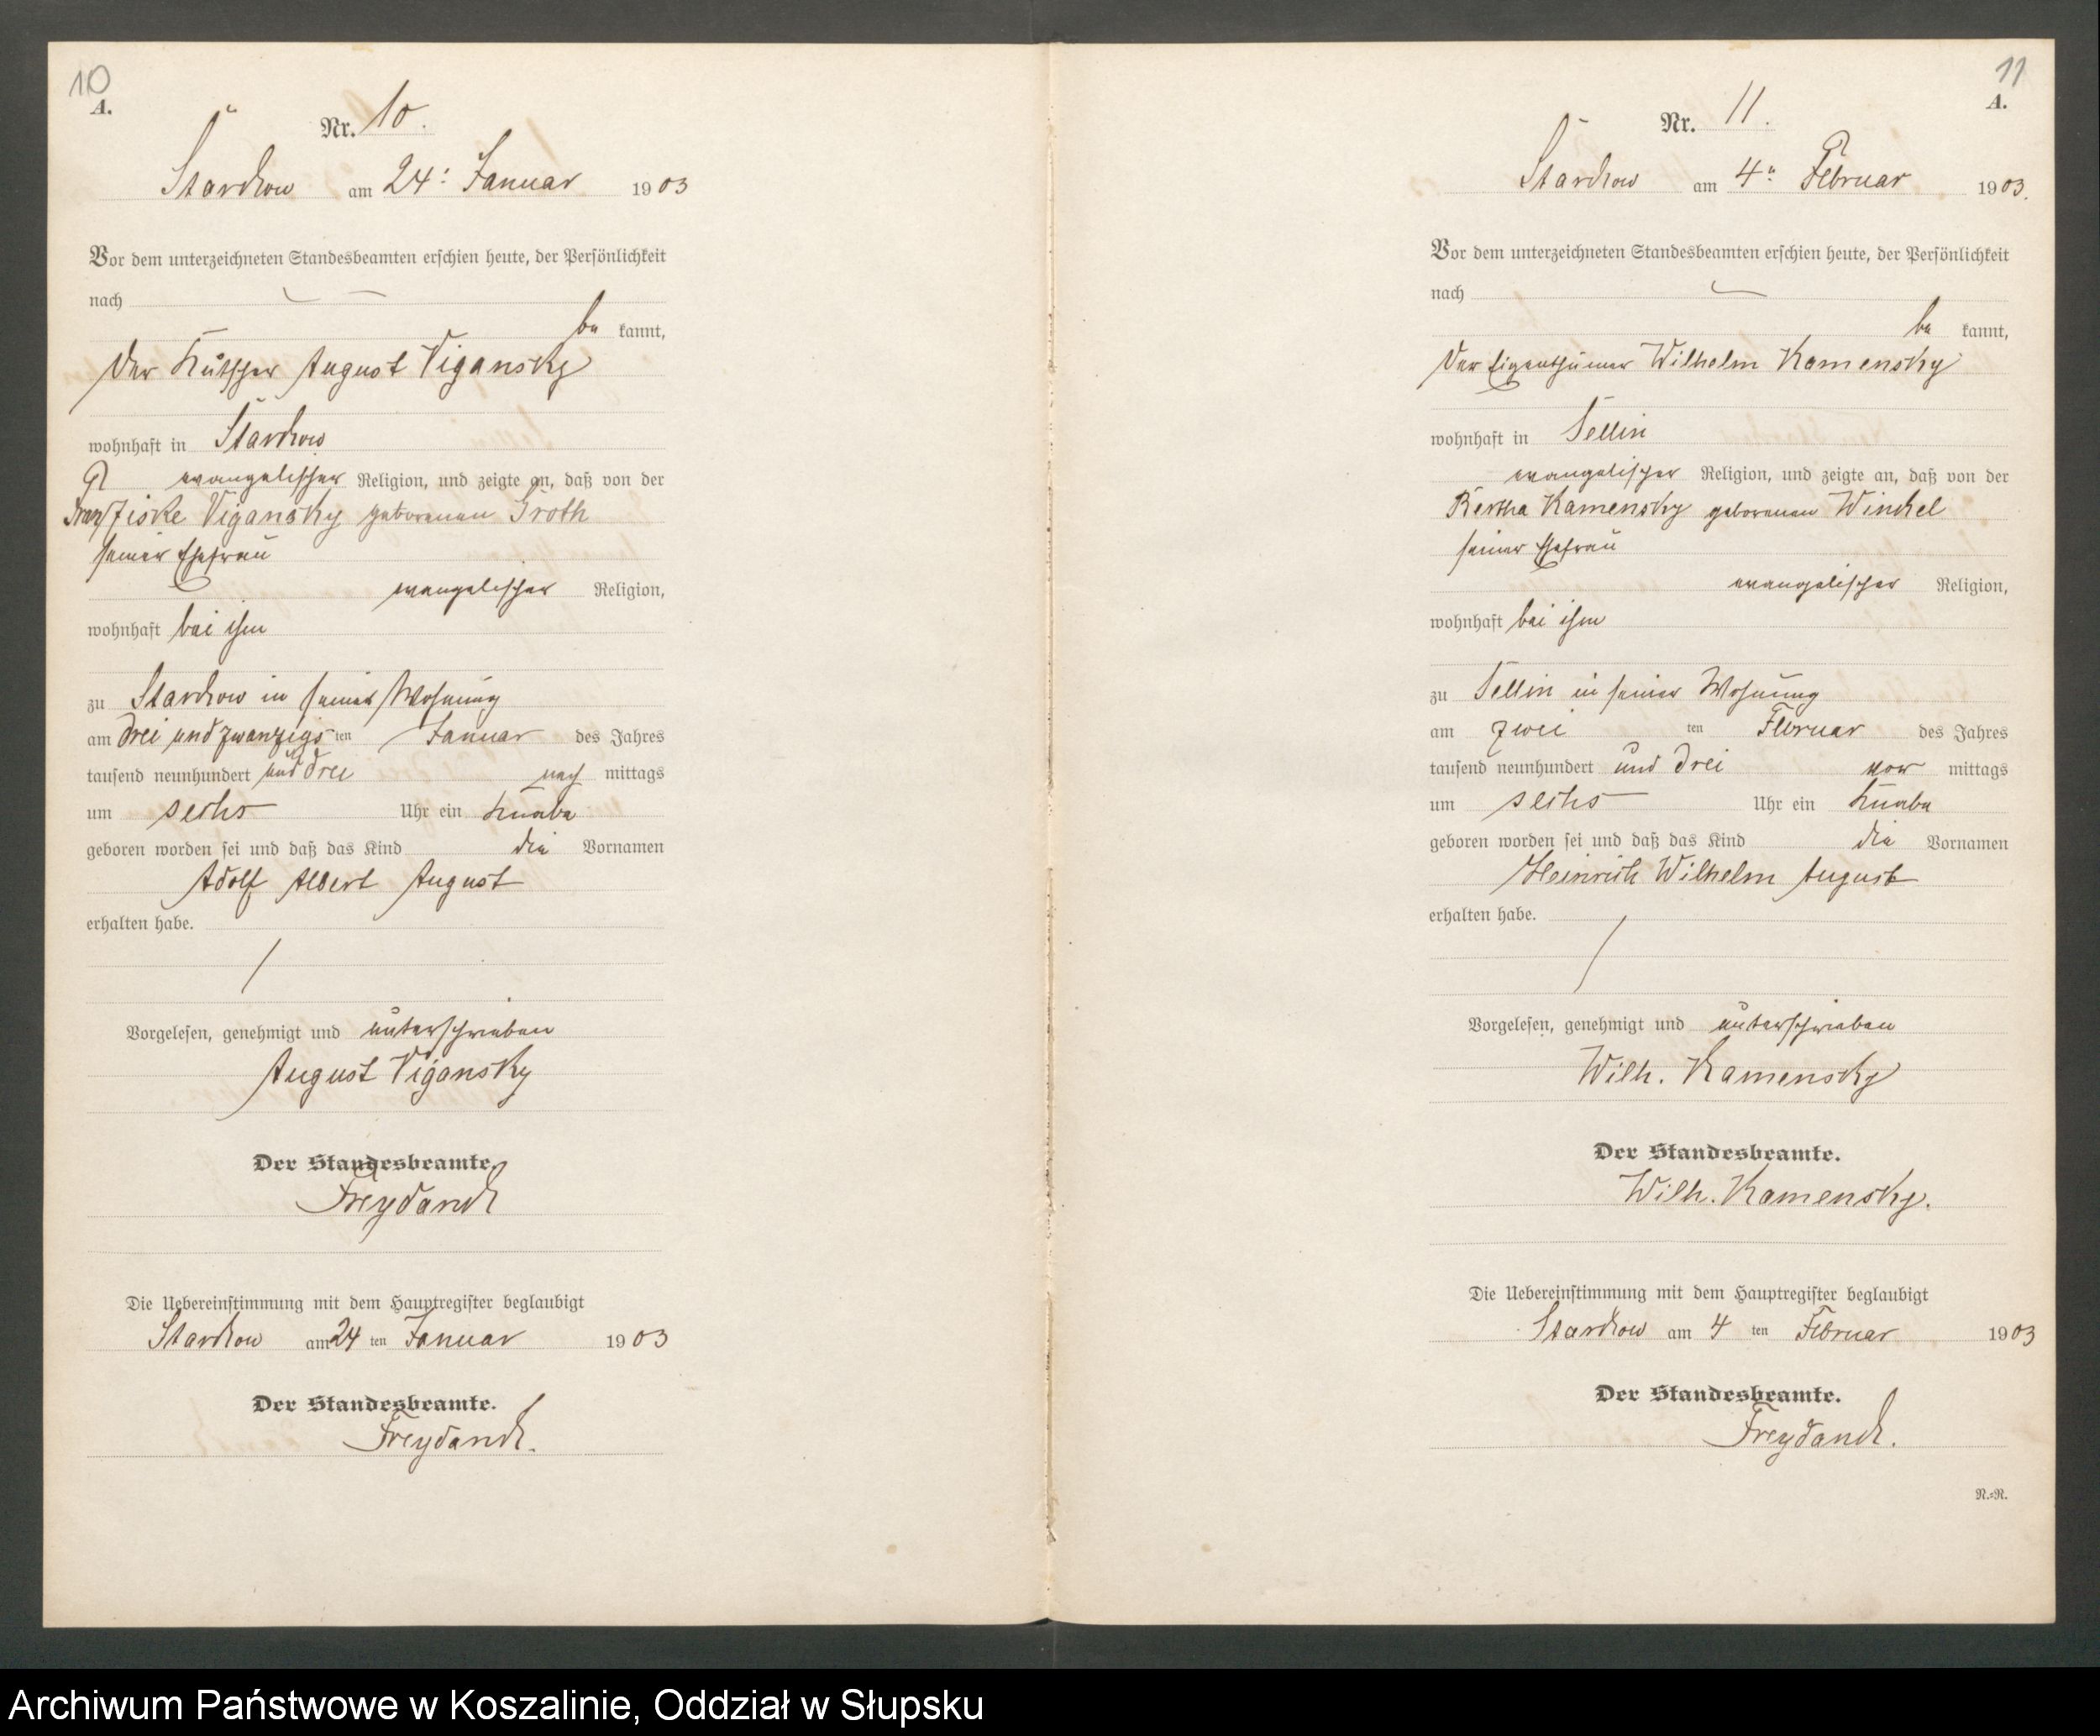 10
A.
Nr. 10.
Starckow am 24: Januar 1903
Vor dem unterzeichneten Standesbeamten erschien heute, der Persönlichkeit
nach
be kannt,
der Kutscher August Vigansky
wohnhaft in Starckow
evangelischer Religion, und zeigte an, daß von der
Franziske Vigansky geborenen Groth
seiner Ehefrau
evangelischer Religion,
wohnhaft bei ihm
zu Starckow in seiner Wohnung
am drei und zwanzigs ten Januar des Jahres
tausend neunhundert und drei nach mittags
um sechs Uhr ein Knabe
geboren worden sei und daß das Kind die Vornamen
Adolf Albert August
erhalten habe.
Vorgelesen, genehmigt und unterschrieben
August Vigansky
Der Standesbeamte.
Freydanck
Die Uebereinstimmung mit dem Hauptregister beglaubigt
Starckow am 24 ten Januar 1903
Der Standesbeamte.
Freydanck.
11
A.
Nr. 11.
Starckow am 4: Februar 1903.
Vor dem unterzeichneten Standesbeamten erschien heute, der Persönlichkeit
nach
be kannt,
der Eigenthümer Wilhelm Kamensky
wohnhaft in Sellin
evangelischer Religion, und zeigte an, daß von der
Bertha Kamensky geborenen Winckel
seiner Ehefrau
evangelischer Religion,
wohnhaft bei ihm
zu Sellin in seiner Wohnung
am zwei ten Februar des Jahres
tausend neunhundert und drei vor mittags
um sechs Uhr ein Knabe
geboren worden sei und daß das Kind die Vornamen
Heinrich Wilhelm August
erhalten habe.
Vorgelesen, genehmigt und unterschrieben
Wilh. Kamensky
Der Standesbeamte.
Wilh. Kamensky.
Die Uebereinstimmung mit dem Hauptregister beglaubigt
Starckow am 4 ten Februar 1903
Der Standesbeamte.
Freydanck.
N.=R.
Archiwum Państwowe w Koszalinie, Oddział w Słupsku